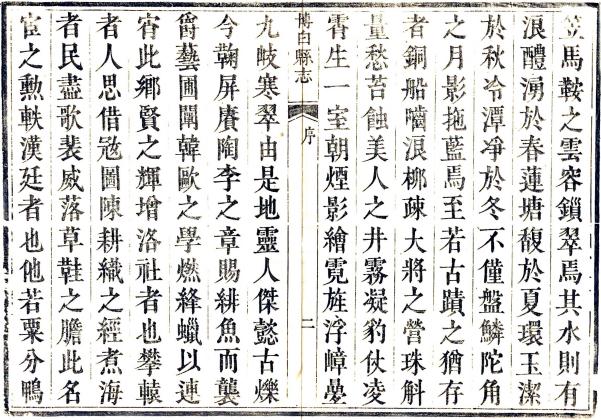 笠馬鞍之雲容鎖翠焉其水則有
浪醴湧於春蓮塘馥於夏環玉潔
於秋冷潭淨於冬不僅盤鱗陀角
之月影拖藍焉至若古蹟之猶存
者銅船嚙浪柳疎大將之營珠斛
量愁苔蝕美人之井霧凝豹仗凌
霄生一室朝煙影繪霓旌浮嶂
博白縣志
序
二
九岐寒翠由是地靈人傑懿古爍
今鞠屏賡陶李之章賜緋魚而襲
爵藝圃闡韓歐之學燃絳蠟以連
宵此鄉賢之輝增洛社者也攀轅
者人思借寇圖陳耕織之經煮海
者民盡歌裴威落草鞋之膽此名
宦之勳軼漢廷者也他若粟分鴨